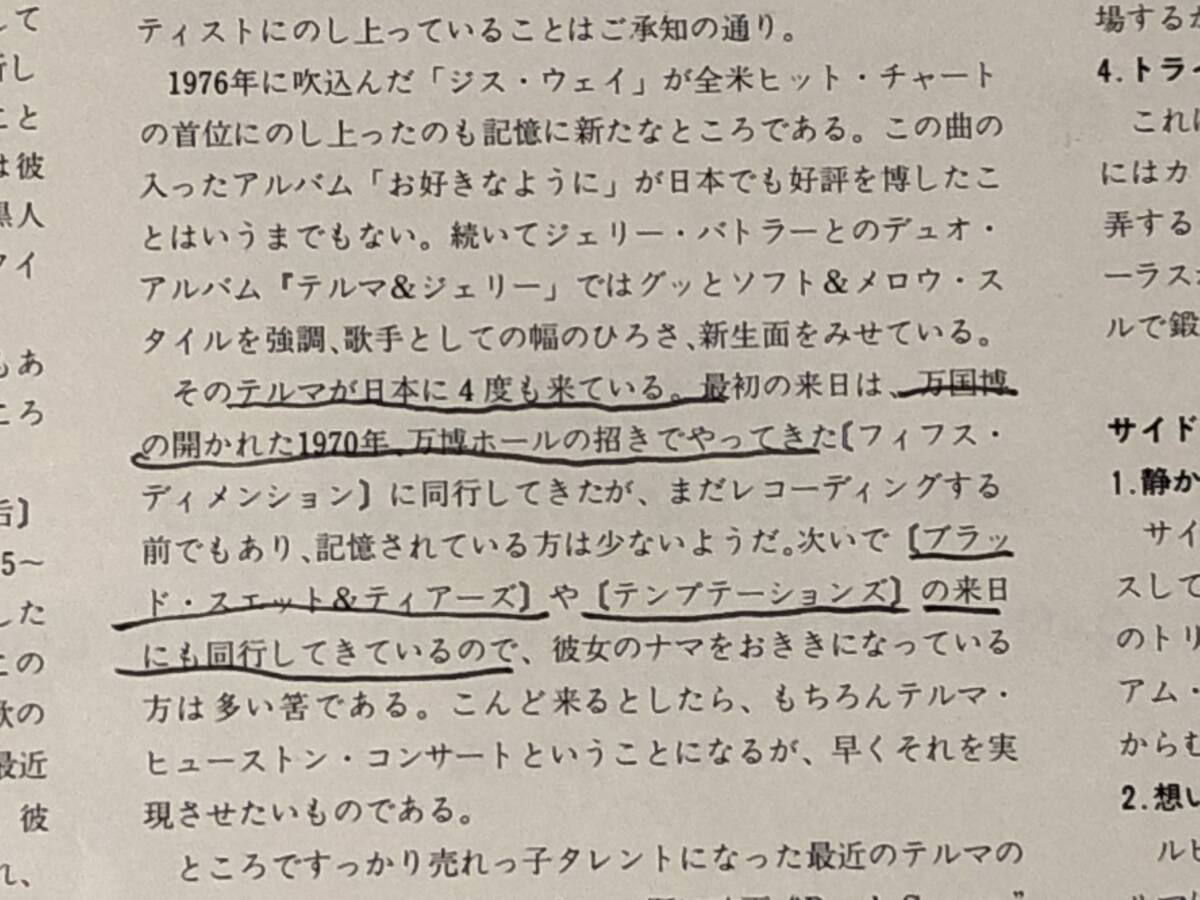 して
折し
こと
は彼
黒人
クイ
もあ
ころ
5〜
した
この
歌の
最近
彼
れ、
ティストにのし上っていることはご承知の通り。
1976年に吹込んだ「ジス・ウェイ」が全米ヒット・チャート
の首位にのし上ったのも記憶に新たなところである。この曲の
入ったアルバム「お好きなように」が日本でも好評を博したこ
とはいうまでもない。続いてジェリー・バトラーとのデュオ・
アルバム『テルマ&ジェリー」ではグッとソフト&メロウ・ス
タイルを強調、歌手としての幅のひろさ、新生面をみせている。
そのテルマが日本に4度も来ている。最初の来日は、万国博
の開かれた1970年、万博ホールの招きでやってきた〔フィフス・
ディメンション〕に同行してきたが、まだレコーディングする
前でもあり、記憶されている方は少ないようだ。次いで〔ブラッ
ド・スエット&ティアーズ〕や〔テンプテーションズ〕の来日
にも同行してきているので、彼女のナマをおききになっている
方は多い筈である。こんど来るとしたら、もちろんテルマ・
ヒューストン・コンサートということになるが、早くそれを実
現させたいものである。
ところですっかり売れっ子タレントになった最近のテルマの
場するか
4.トライ
これは
にはカ
弄する
ーラスが
ルで鍛
サイド
1.静か
サイ
スして
のトリ
アム・
からむ
2.想い
ルビ